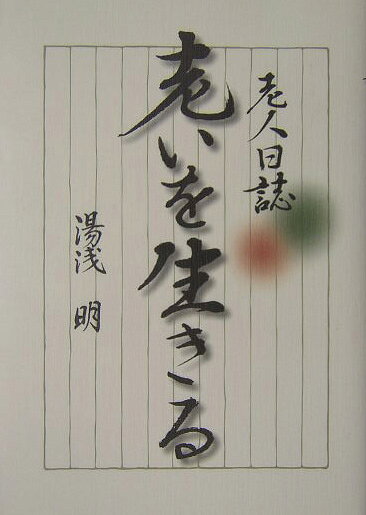 老人日誌
老いを生きる
湯浅 明